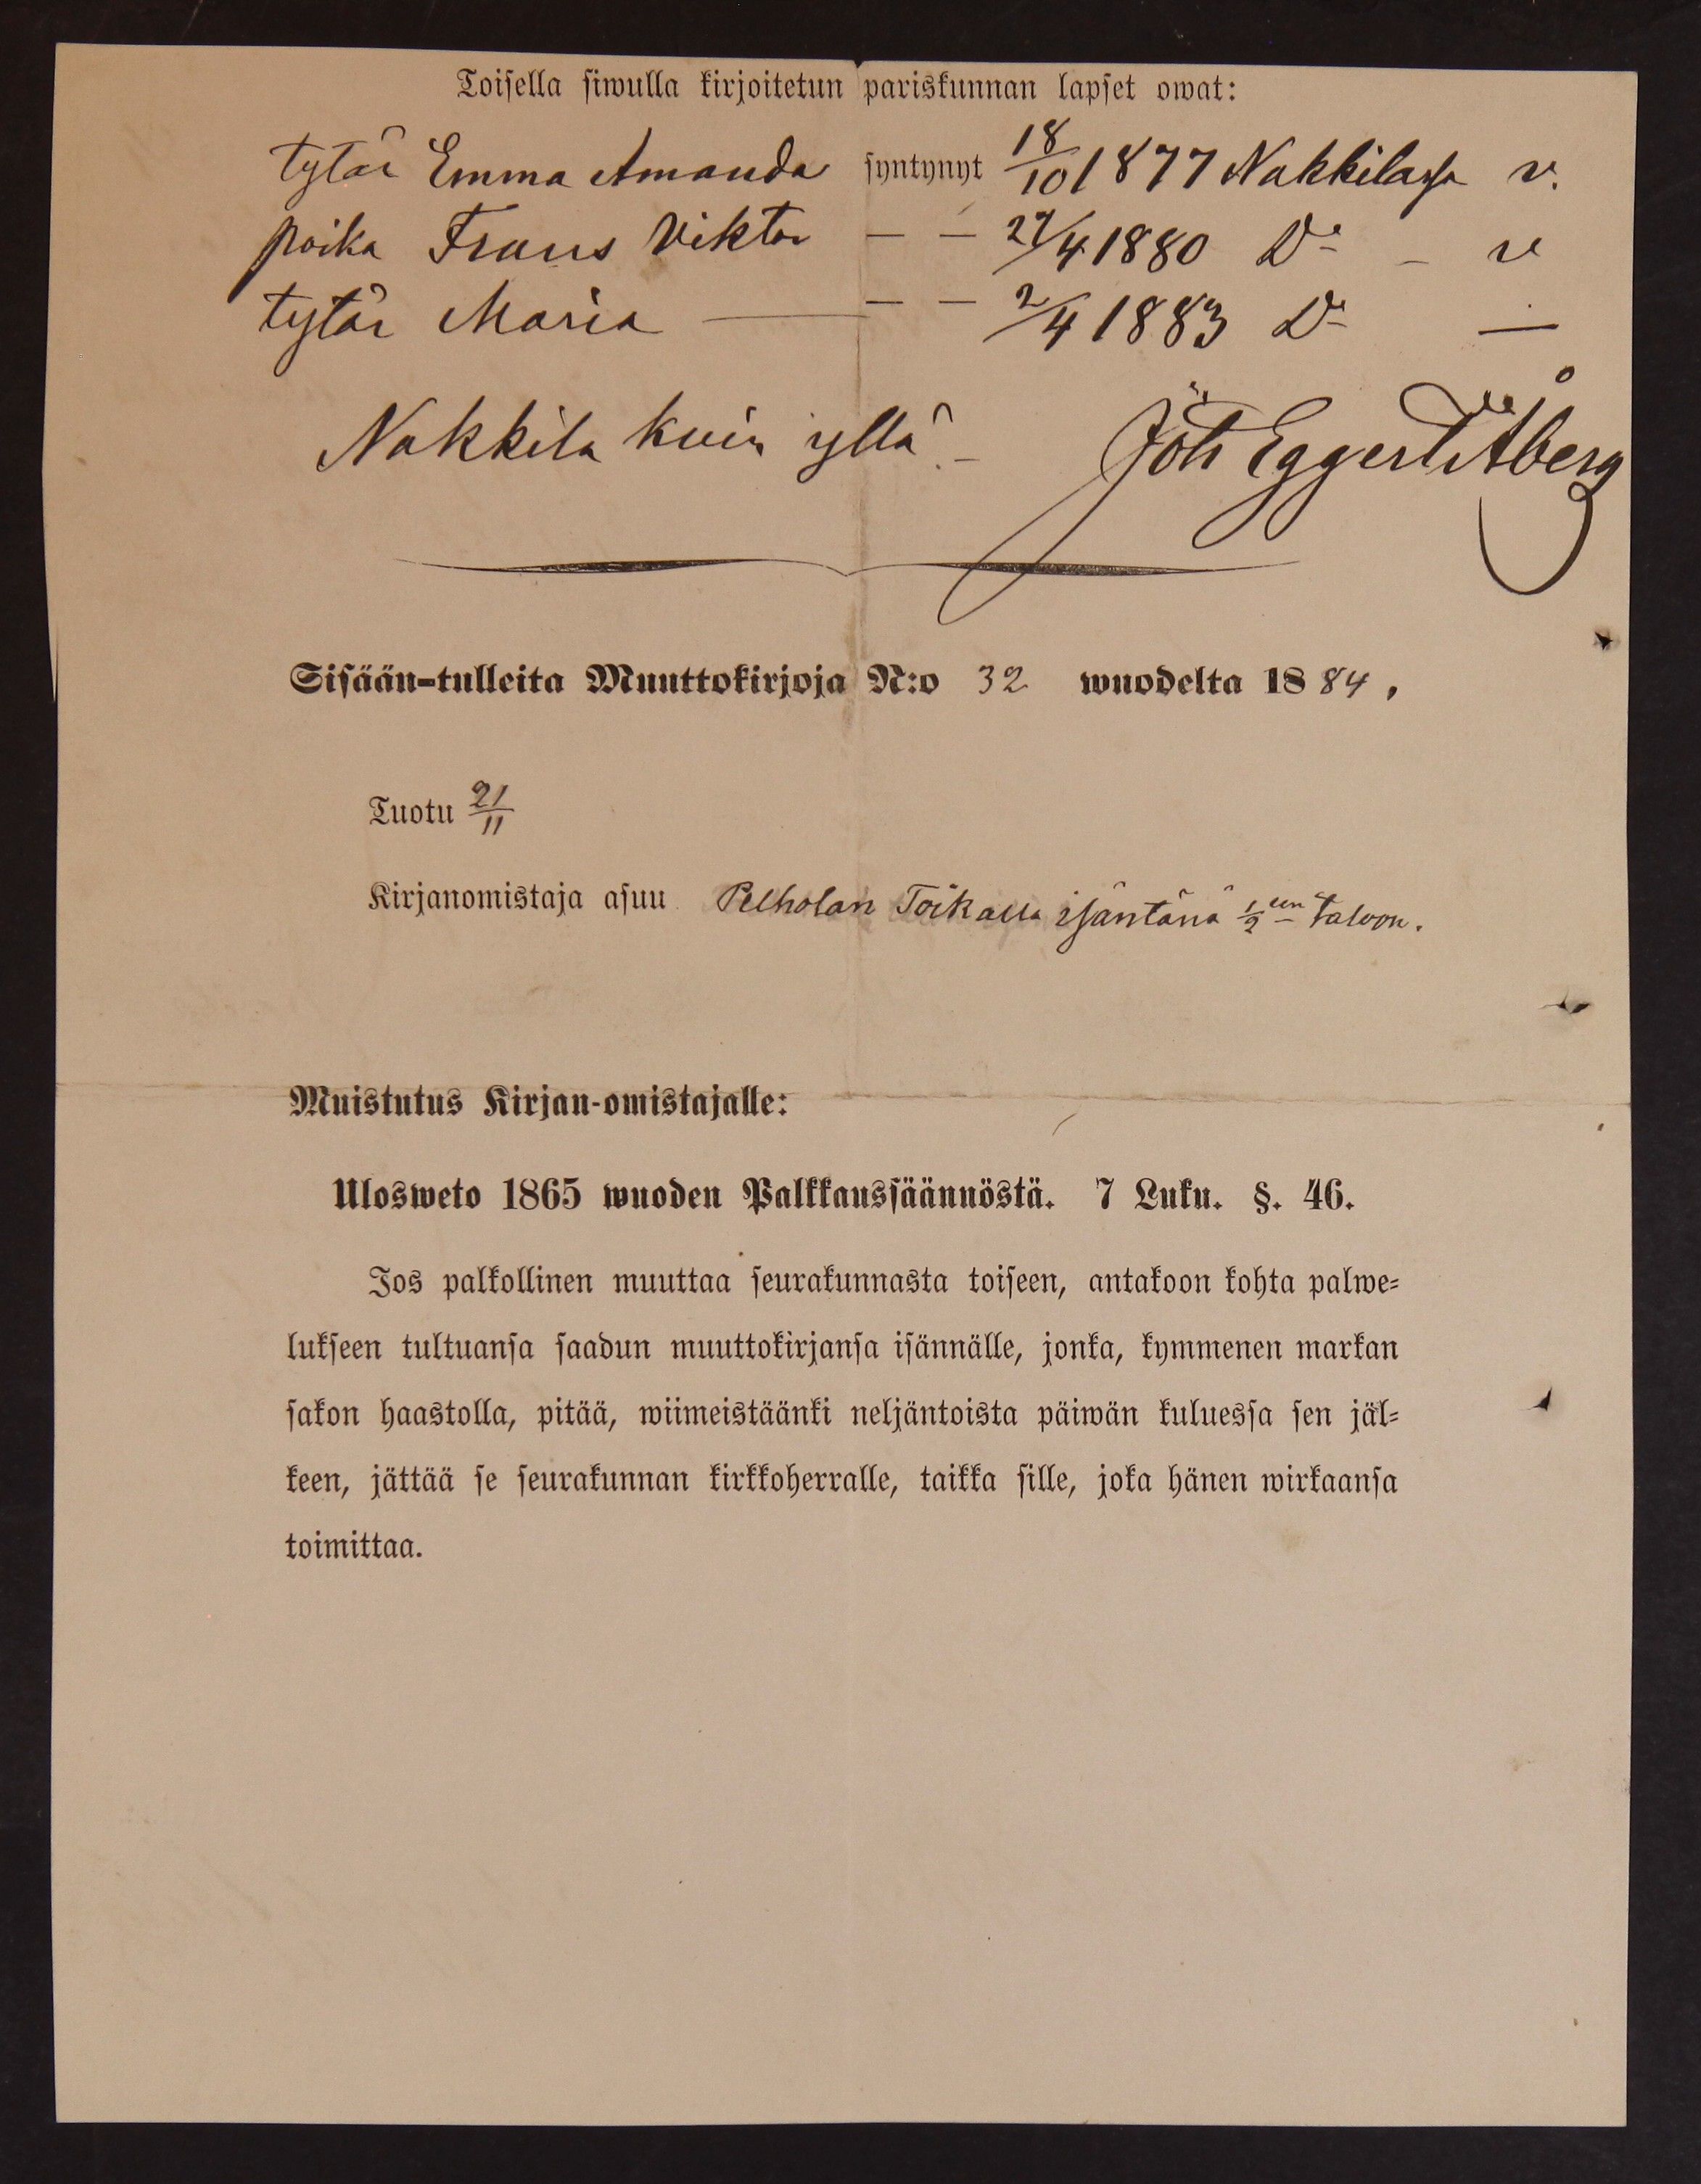 Toisella siwulla kirjoitetun pariskunnan lapset owat:
tytär Emma Amanda syntynyt 18/10 1877 Nakkilassa v.
poika Frans Viktor — — 27/4 1880 Do – v
tytär Maria — — 2/4 1883 Do —
Nakkila kuin yllä. – Joh Eggert Åberg
Sisään-tulleita Muuttokirjoja N:o 32 wuodelta 1884.
Tuotu 21/11
Kirjanomistaja asuu Pelholan Toikassa isäntänä 1/2 taloon.
Muistutus Kirjan-omistajalle:
Ulosweto 1865 wuoden Palkkaussäännöstä. 7 Luku. §. 46.
Jos palkollinen muuttaa seurakunnasta toiseen, antakoon kohta palwe-
lukseen tultuansa saadun muuttokirjansa isännälle, jonka, kymmenen markan
sakon haastolla, pitää, wiimeistäänki neljäntoista päiwän kuluessa sen jäl-
keen, jättää se seurakunnan kirkkoherralle, taikka sille, joka hänen wirkaansa
toimittaa.